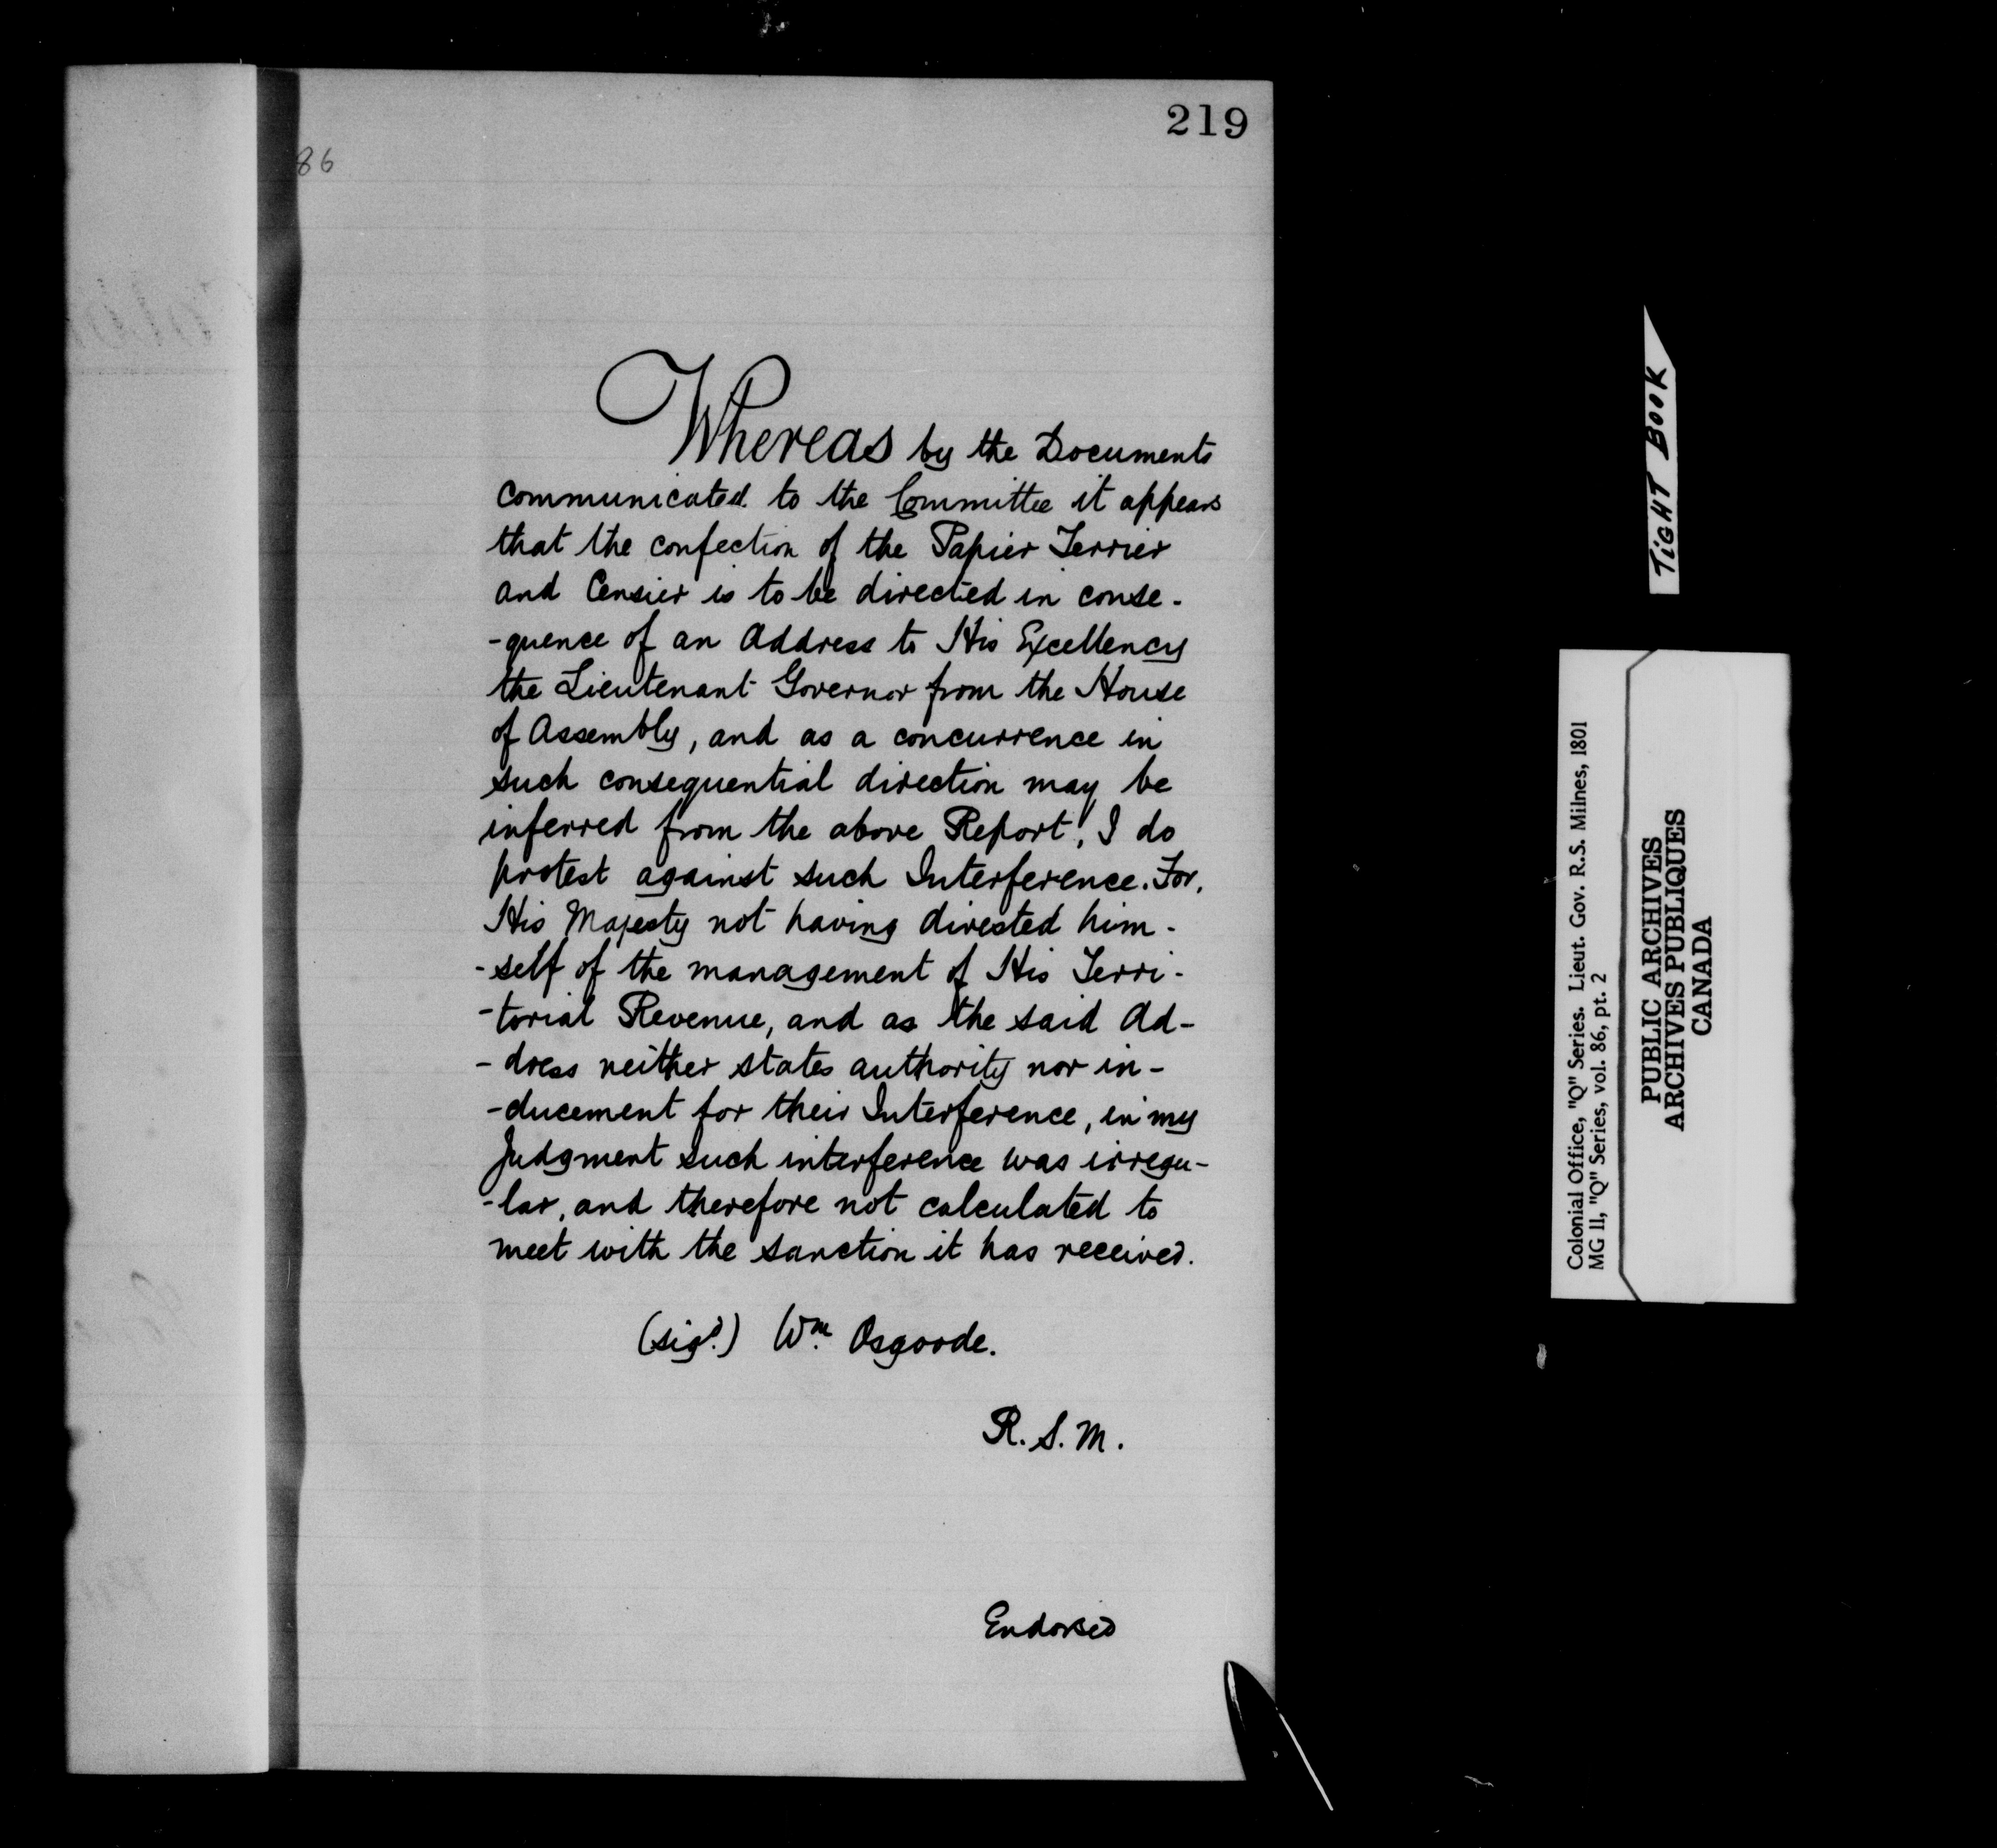 219
86
Whereas by the Documents
communicated to the Committee it appears
that the confection of the Papier Terrier
and Censier is to be directed in conse-
-quence of an Address to His Excellency
the Lieutenant Governor from the House
of Assembly, and as a concurrence in
such consequential direction may be
inferred from the above Report, I do
protest against such Interference. For,
His Majesty not having divested him-
-self of the management of His Terri-
-torial Revenue, and as the said Ad-
-dress neither states authority nor in-
-ducement for their Interference, in my
Judgment such interference was irregu-
-lar, and therefore not calculated to
meet with the sanction it has received.
(sigd.) Wm. Osgoode.
R. S. M.
Endorsed
TIGHT BOOK
Colonial Office, "Q" Series. Lieut. Gov. R.S. Milnes, 1801
MG 11, "Q" Series, vol. 86, pt. 2
PUBLIC ARCHIVES
ARCHIVES PUBLIQUES
CANADA